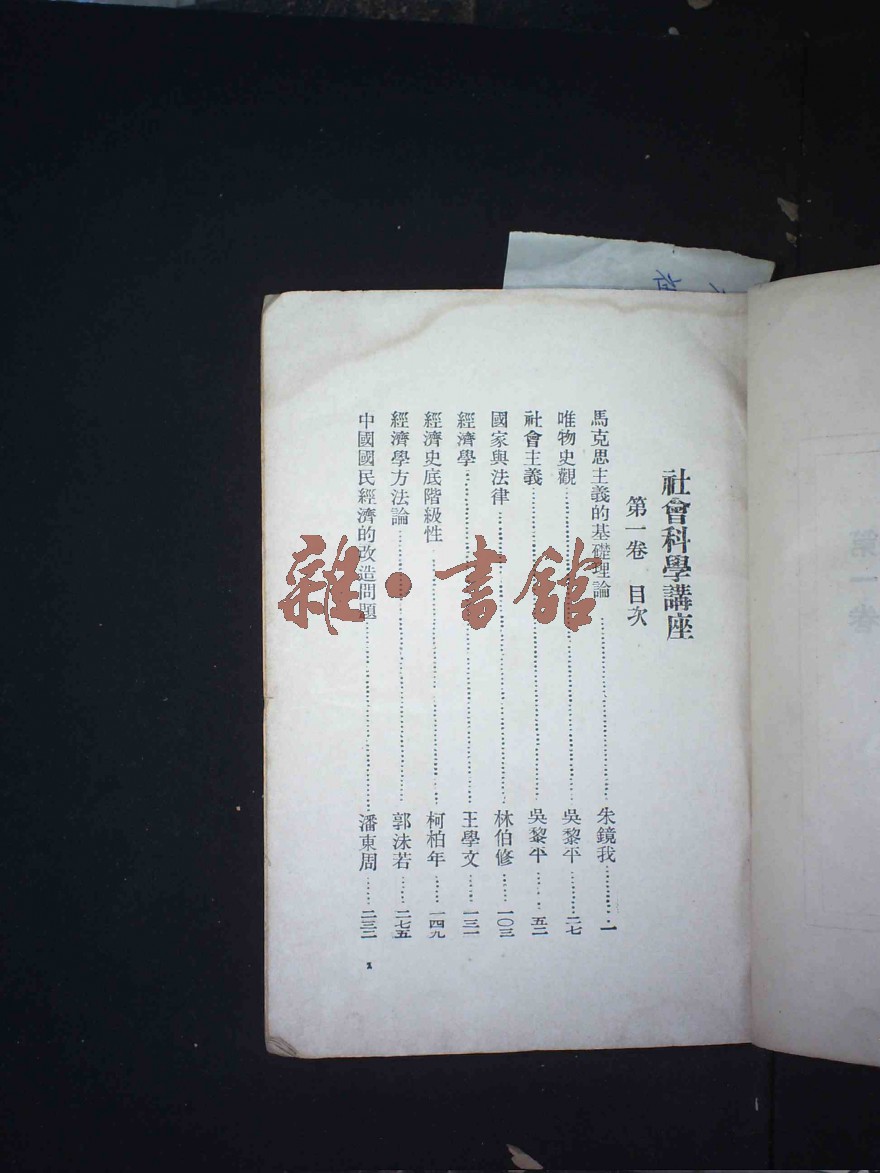 社會科學講座
第一卷 目次
馬克思主義的基礎理論……朱鏡我……一
唯物史觀……吳黎平……二七
社會主義……吳黎平……五二
國家與法律……林伯修……一〇三
經濟學……王學文……一三一
經濟史底階級性……柯柏年……一四九
經濟學方法論……郭沫若……二七五
中國國民經濟的改造問題……潘東周……二三二
1
雜·書館
第一卷